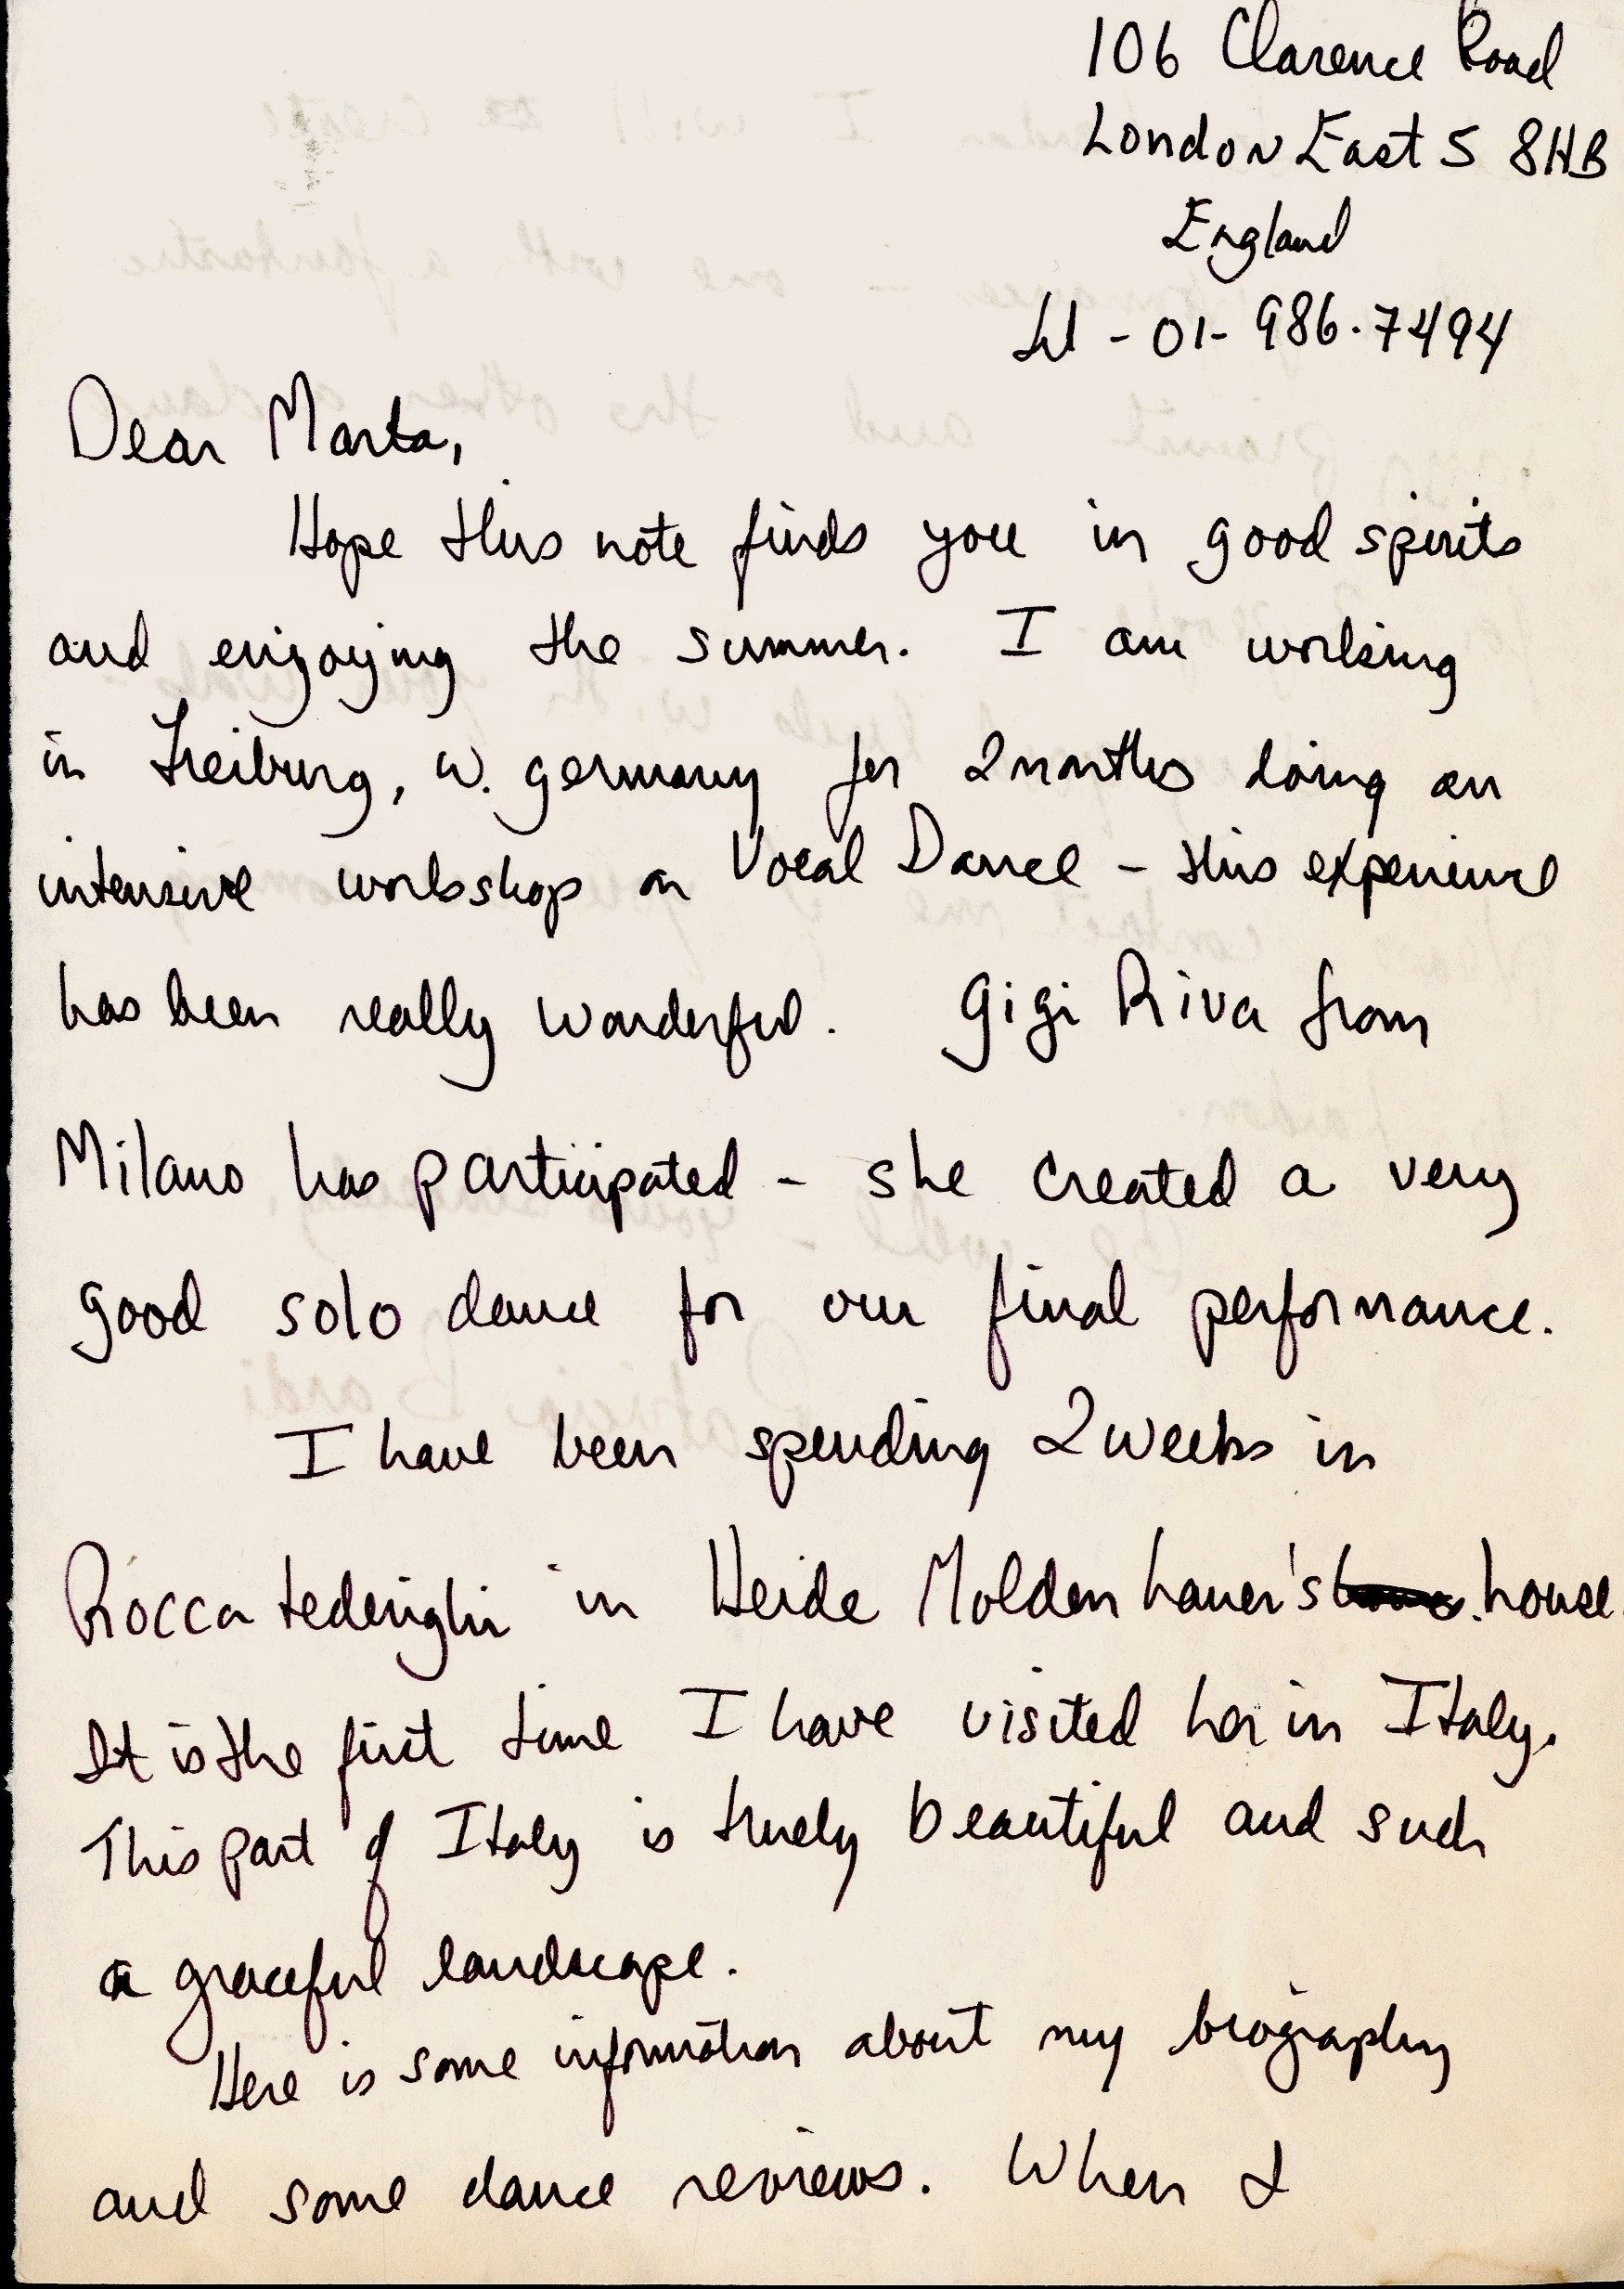 106 Clarence Road
London East 5 8HB
England
tel - 01- 986.7494
Dear Marta,
Hope this note finds you in good spirits
and enjoying the summer. I am working
in Freiburg, W. Germany for 2 months doing an
intensive workshop on Vocal Dance - this experience
has been really wonderful. Gigi Riva from
Milano has participated - she created a very
good solo dance for our final performance.
I have been spending 2 weeks in
Rocca tederighi in Heide Moldenhauer's house.
It is the first time I have visited her in Italy.
This part of Italy is truely beautiful and such
a graceful landscape.
Here is some information about my biography
and some dance reviews. When I